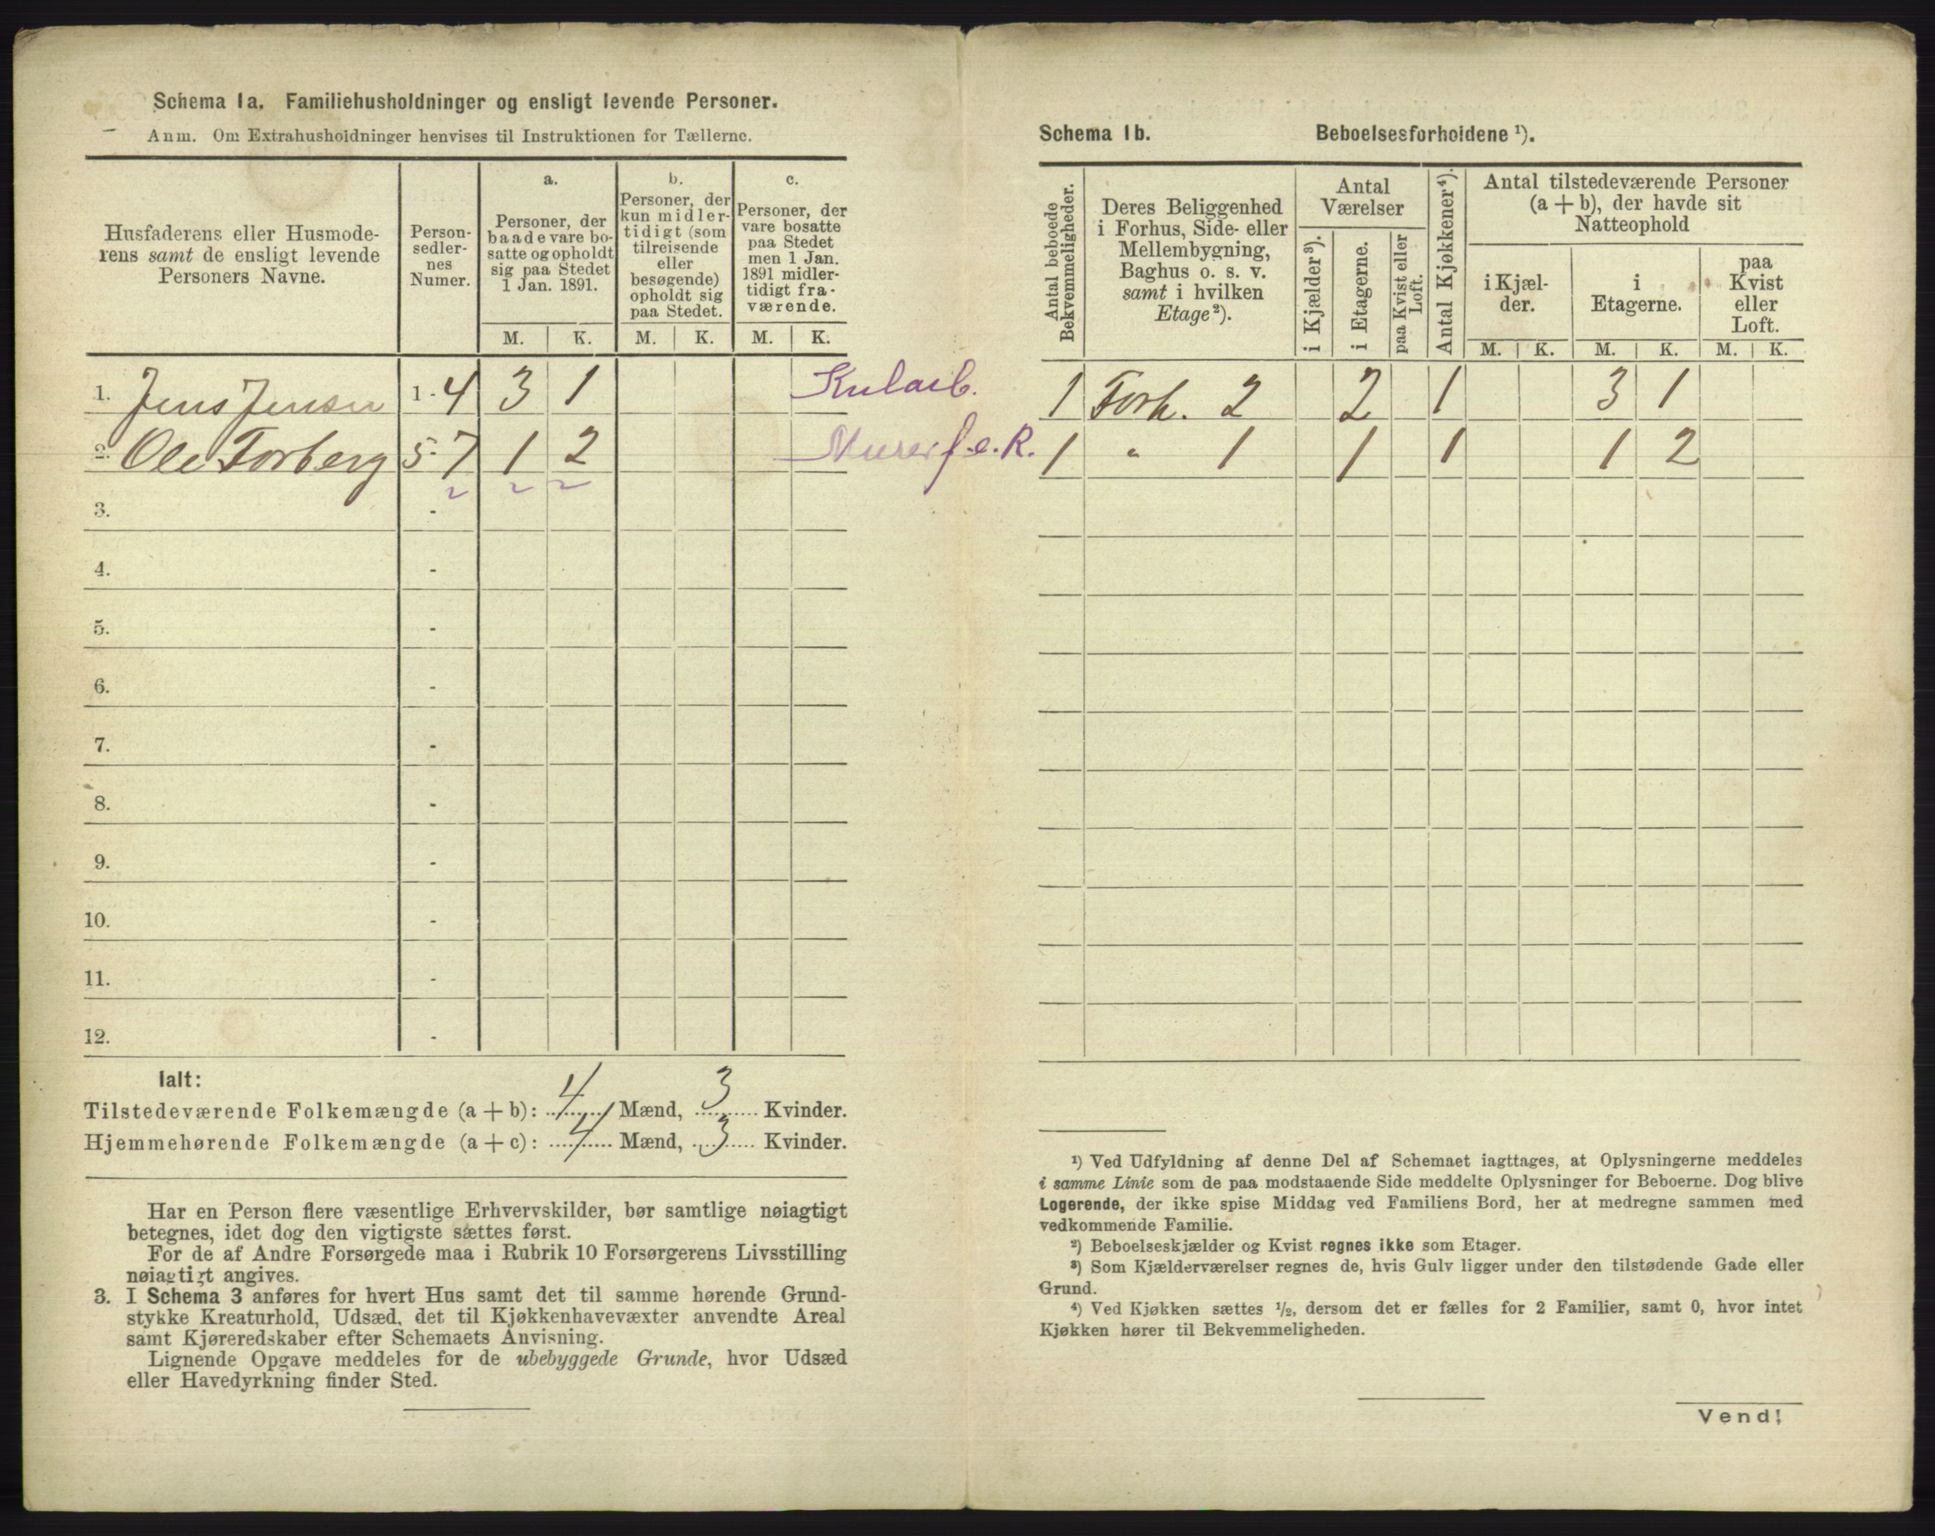 Schema 1a. Familiehusholdninger og ensligt levende Personer.
Anm. Om Extrahusholdninger henvises til Instruktionen for Tællerne.
Husfaderens eller Husmoderens samt de ensligt levende Personers Navne.
Person-sedlernes Numer.
a.
Personer, der baade vare bosatte og opholdt sig paa Stedet 1 Jan. 1891.
b.
Personer, der kun midlertidigt (som tilreisende eller besøgende) opholdt sig paa Stedet.
c.
Personer, der vare bosatte paa Stedet men 1 Jan. 1891 midlertidigt fraværende.
M. K. M. K. M. K.
1. Jens Jensen 1-4 3 1 Kularb.
2. Ole Torberg 5-7 1 2 Murerf. e. R.
3. -
4. -
5. -
6. -
7. -
8. -
9. -
10. -
11. -
12. -
Ialt:
Tilstedeværende Folkemængde (a + b): 4 Mænd, 3 Kvinder.
Hjemmehørende Folkemængde (a + c): 4 Mænd, 3 Kvinder.
Har en Person flere væsentlige Erhvervskilder, bør samtlige nøiagtigt
betegnes, idet dog den vigtigste sættes først.
For de af Andre Forsørgede maa i Rubrik 10 Forsørgerens Livsstilling
nøiagtigt angives.
3. I Schema 3 anføres for hvert Hus samt det til samme hørende Grund-
stykke Kreaturhold, Udsæd, det til Kjøkkenhavevæxter anvendte Areal
samt Kjøreredskaber efter Schemaets Anvisning.
Lignende Opgave meddeles for de ubebyggede Grunde, hvor Udsæd
eller Havedyrkning finder Sted.
Schema 1b. Beboelsesforholdene ¹).
Antal beboede Bekvemmeligheder.
Deres Beliggenhed i Forhus, Side- eller Mellembygning, Baghus o. s. v. samt i hvilken Etage²).
Antal Værelser
i Kjælder³).
i Etagerne.
paa Kvist eller Loft.
Antal Kjøkkener⁴).
Antal tilstedeværende Personer (a + b), der havde sit Natteophold
i Kjælder.
i Etagerne.
paa Kvist eller Loft.
M. K. M. K. M. K.
1 Forh. 2 2 1 3 1
1 " 1 1 1 1 2
¹) Ved Udfyldning af denne Del af Schemaet iagttages, at Oplysningerne meddeles
i samme Linie som de paa modstaaende Side meddelte Oplysninger for Beboerne. Dog blive
Logerende, der ikke spise Middag ved Familiens Bord, her at medregne sammen med
vedkommende Familie.
²) Beboelseskjælder og Kvist regnes ikke som Etager.
³) Som Kjælderværelser regnes de, hvis Gulv ligger under den tilstødende Gade eller
Grund.
⁴) Ved Kjøkken sættes ½, dersom det er fælles for 2 Familier, samt 0, hvor intet
Kjøkken hører til Bekvemmeligheden.
Vend!